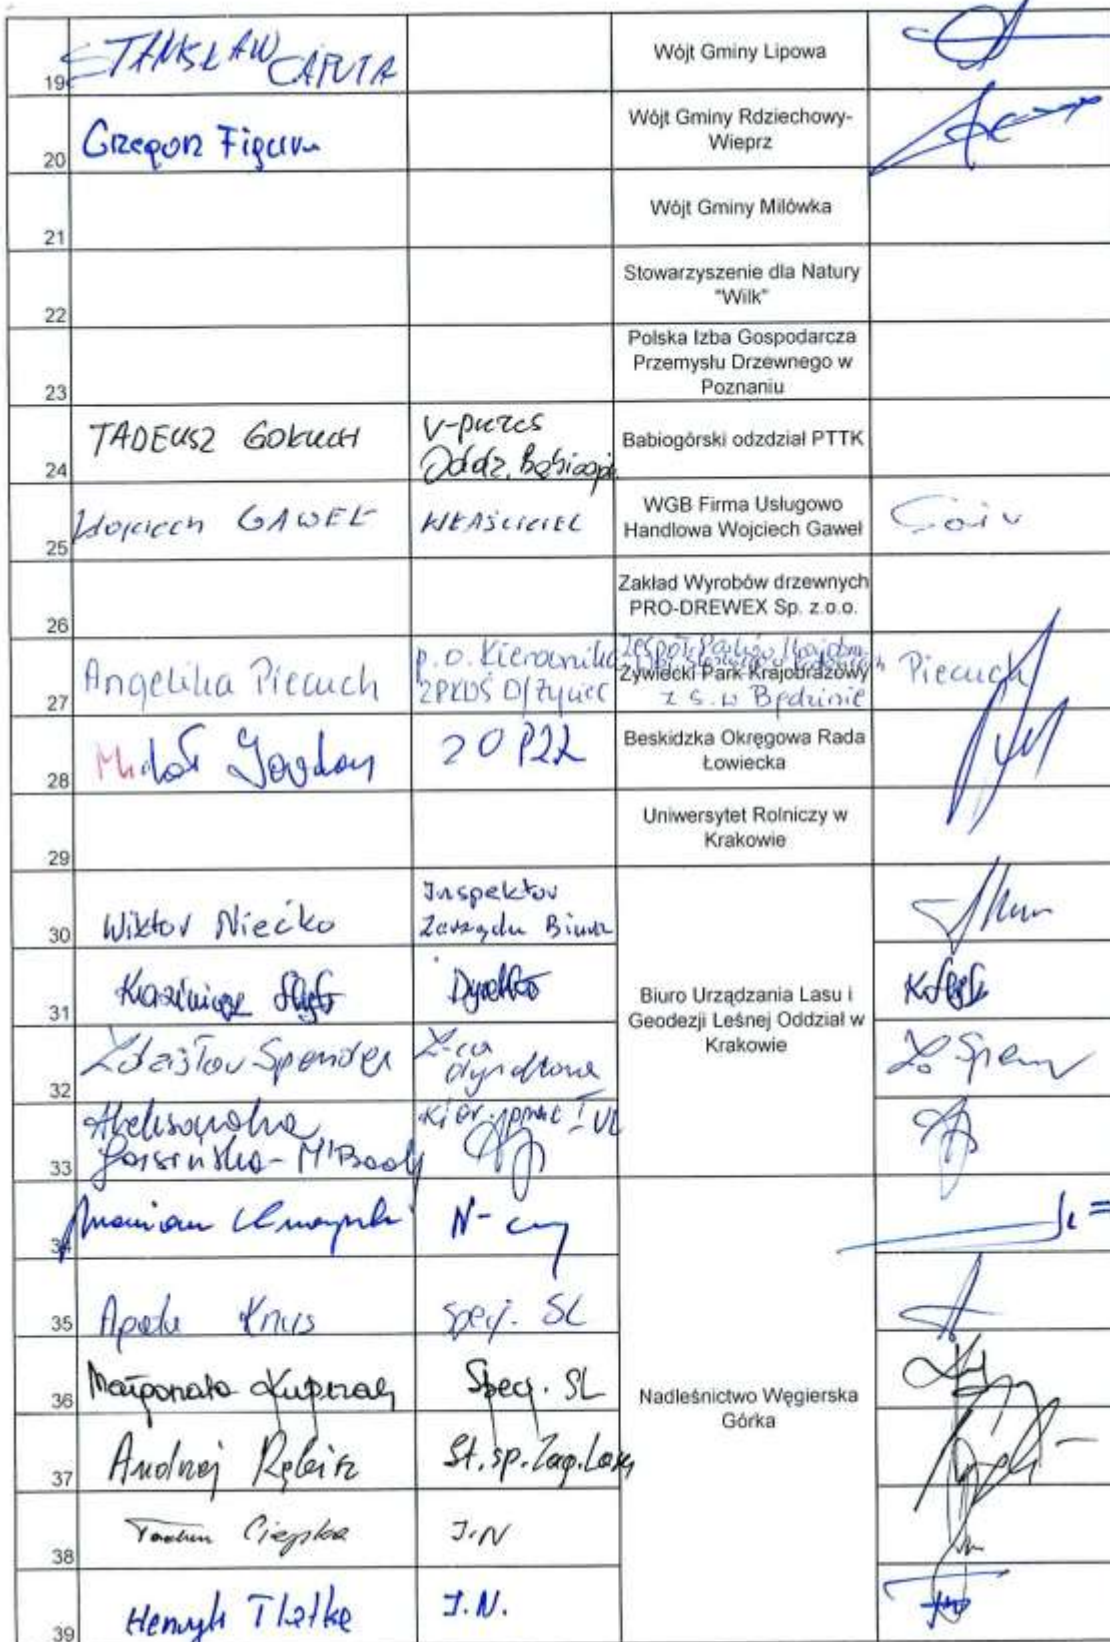 19 STANISŁAW CAPUTA Wójt Gminy Lipowa
20 Grzegorz Figura Wójt Gminy Rdziechowy-
Wieprz
21 Wójt Gminy Milówka
22 Stowarzyszenie dla Natury
"Wilk"
23 Polska Izba Gospodarcza
Przemysłu Drzewnego w
Poznaniu
24 TADEUSZ V-prezes
Oddz. Babiogór.
Babiogórski odzdział PTTK
25 Wojciech GAWEŁ WŁAŚCICIEL WGB Firma Usługowo
Handlowa Wojciech Gaweł
26 Zakład Wyrobów drzewnych
PRO-DREWEX Sp. z.o.o.
27 Angelika Piecuch p.o. Kierownika
ZPKWŚ O/Żywiec
Zespół Parków Krajobr.
Żywiecki Park Krajobrazowy
z s. w Będzinie
Piecuch
28 Beskidzka Okręgowa Rada
Łowiecka
29 Uniwersytet Rolniczy w
Krakowie
30 Wiktor Niećko Inspektor
Zarządu Biura
31 Kazimierz Dyrektor
Biuro Urządzania Lasu i
Geodezji Leśnej Oddział w
Krakowie
32 Zdzisław Spendel Z-ca
dyrektora
33 Aleksandra
34 Marian N-czy
35 Knus Specj. SL
36 Małgorzata Spec. SL
Nadleśnictwo Węgierska
Górka
37 Andrzej St. sp. Zag. Lasu
38 Ciepka I.N
39 Henryk Tlałka I.N.